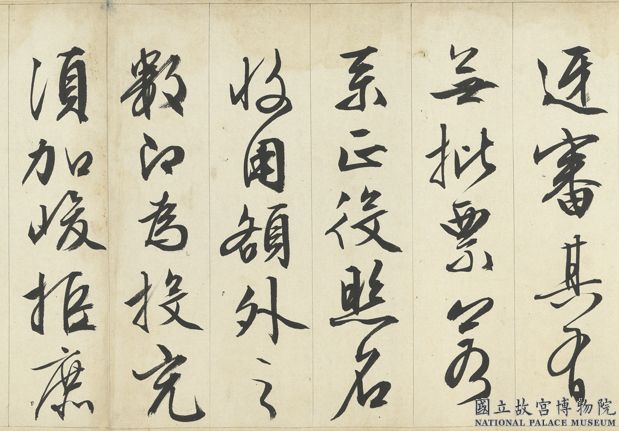 迓審其有
無批票若
系正役照名
收用額外之
數即為投充
須加峻拒庶
國立故宮博物院
NATIONAL PALACE MUSEUM